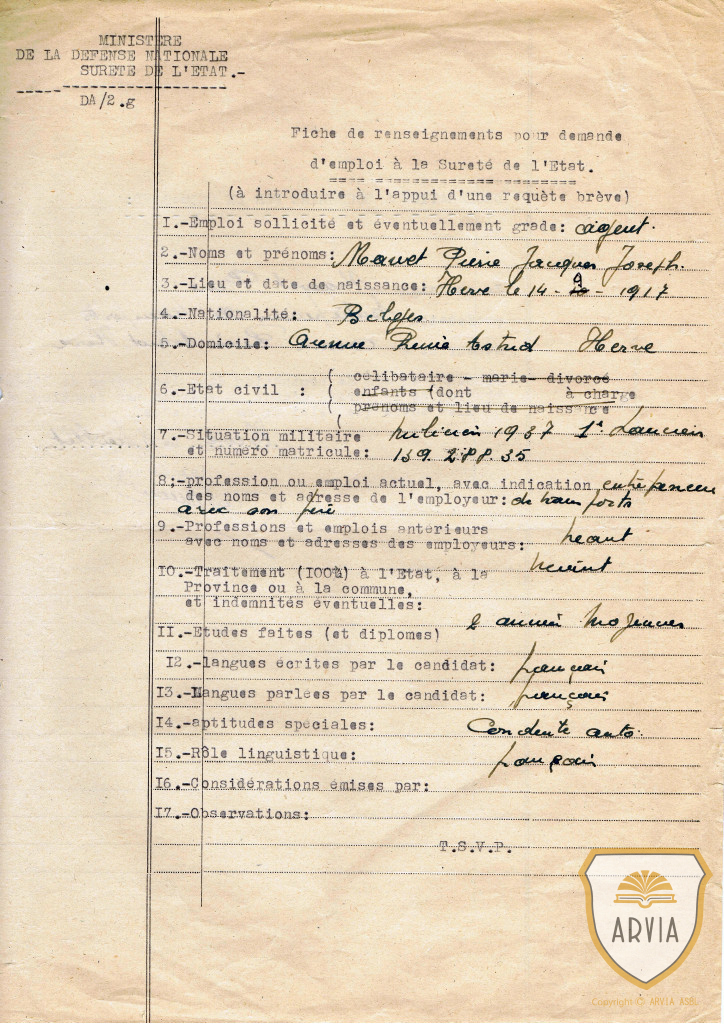 MINISTERE
DE LA DEFENSE NATIONALE
SURETE DE L'ETAT.-
DA/2.g
Fiche de renseignements pour demande
d'emploi à la Sureté de l'Etat.
(à introduire à l'appui d'une requète brève)
I.-Emploi sollicité et éventuellement grade: agent.
2.-Noms et prénoms: Pierre Jacques Joseph
3.-Lieu et date de naissance: Herve le 14-9-1917
4.-Nationalité: Belges
5.-Domicile: Avenue Reine Astrid Herve
celibataire - marie- divorcé
6.-Etat civil : ( enfants (dont à charge
prénoms et lieu de naissance
7.-Situation militaire milicien 1937 1r Lanciers
et numéro matricule: 139.288.35
8;-profession ou emploi actuel, avec indication entrepreneur
des noms et adresse de l'employeur: de transports
avec son père
9.-Professions et emplois antérieurs
avec noms et adresses des employeurs: néant
IO.-Traitement (IOO%) à l'Etat, à la néant
Province ou à la commune,
et indemnités éventuelles:
2 années moyennes
II.-Etudes faites (et diplomes)
I2.-langues écrites par le candidat: français
I3.-Langues parlées par le candidat: français
I4.-aptitudes spéciales: Conduite auto.
I5.-Rôle linguistique: français
I6.-Considérations émises par:
I7.-Observations:
T.S.V.P.
ARVIA
Copyright © ARVIA ASBL